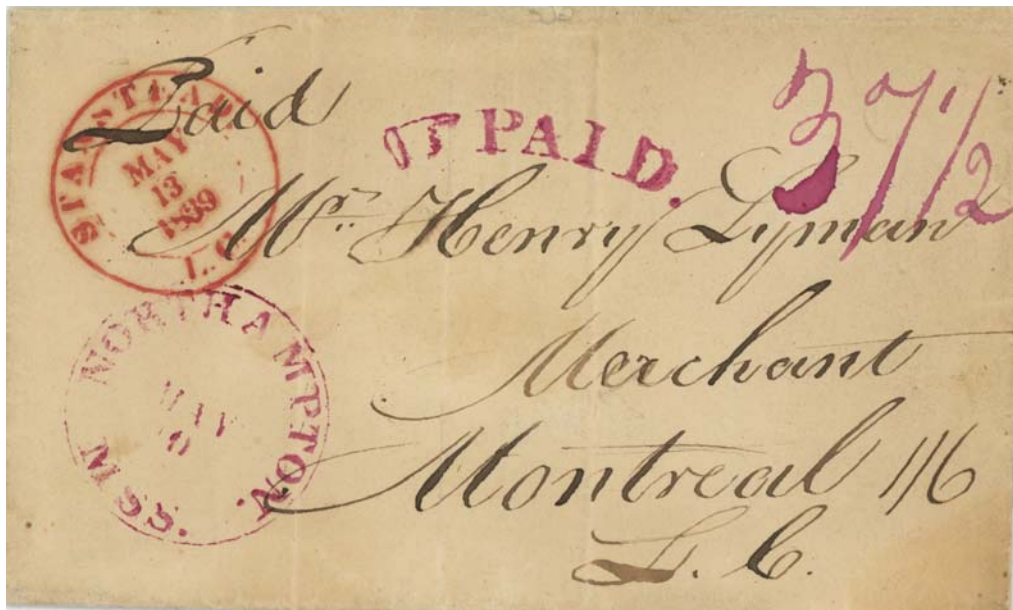 Paid
STANSTEAD
MAY
13
1839
L.C.
PAID.
37 1/2
Mr. Henry Lyman
Merchant
Montreal 1/6
L. C.
NORTHAMPTON. MSS.
MAY